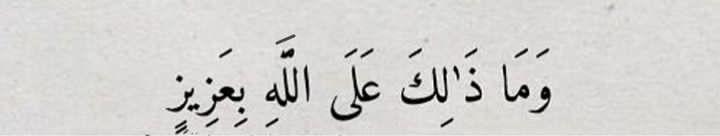 وَمَا ذَٰلِكَ عَلَى اللَّهِ بِعَزِيزٍ